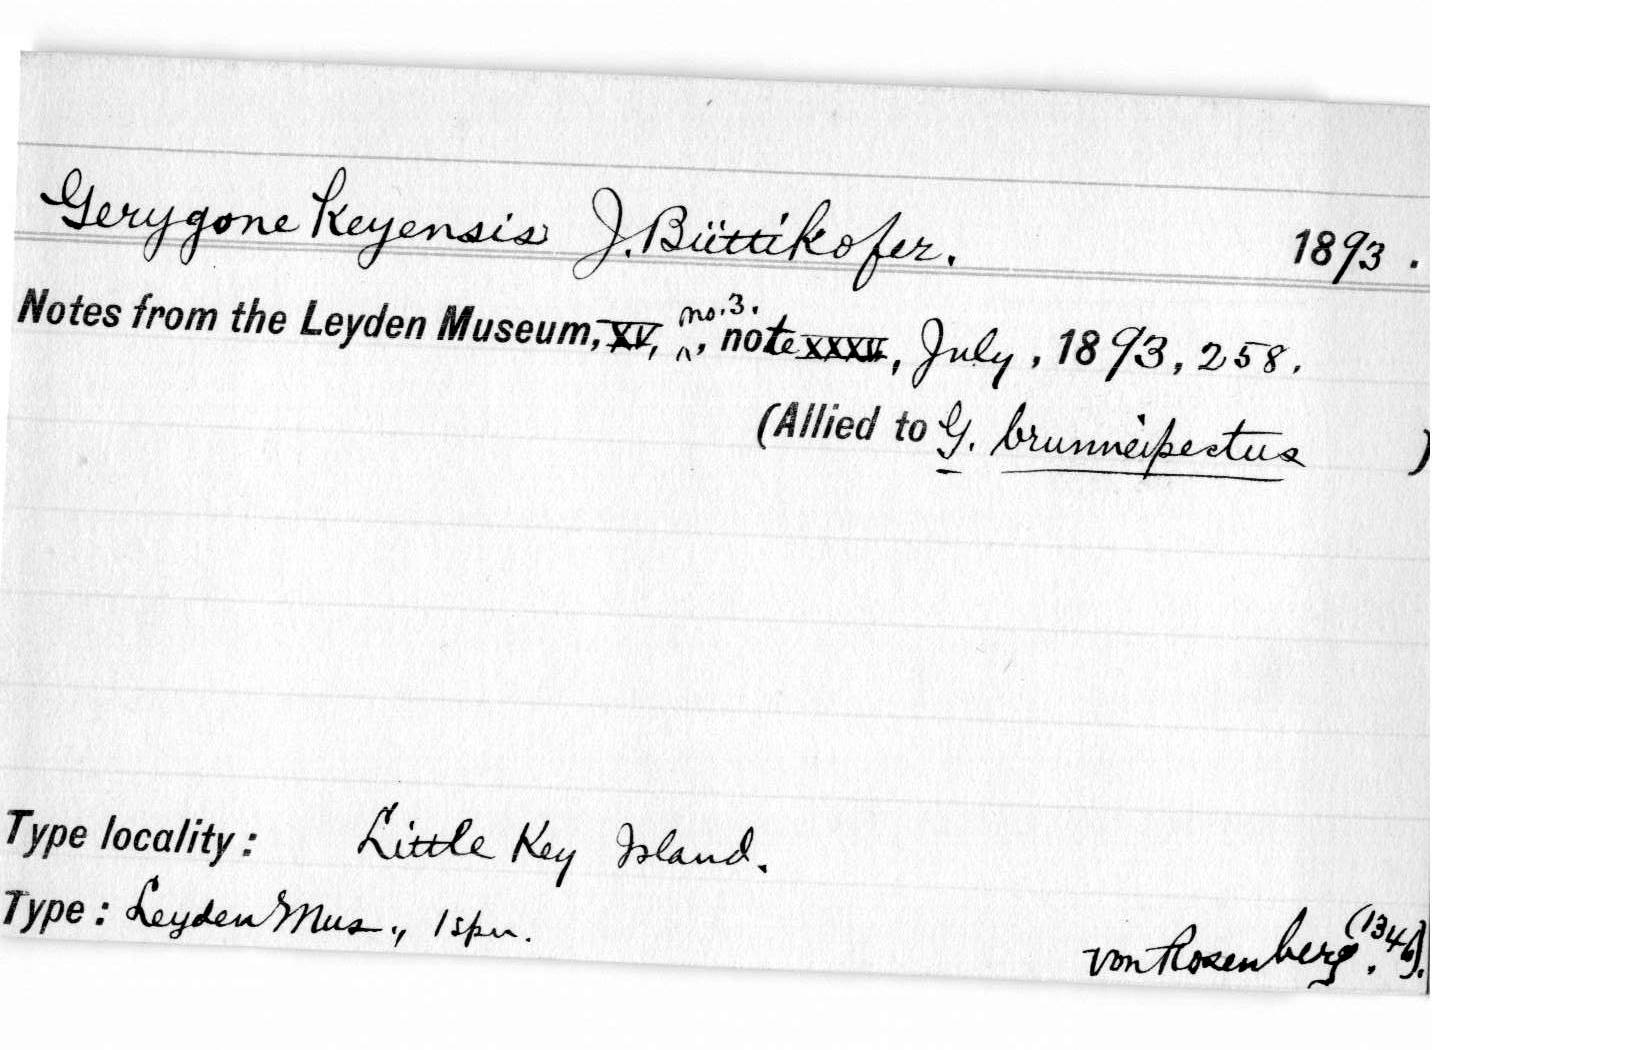 Gerygone keyensis J. Büttikofer. 1893.
Notes from the Leyden Museum, XV, no. 3., note XXXV, July, 1893, 258.
(Allied to G. brunneipectus )
Type locality: Little Key Island.
Type: Leyden Mus., 1 spn.
von Rosenberg. (1346).